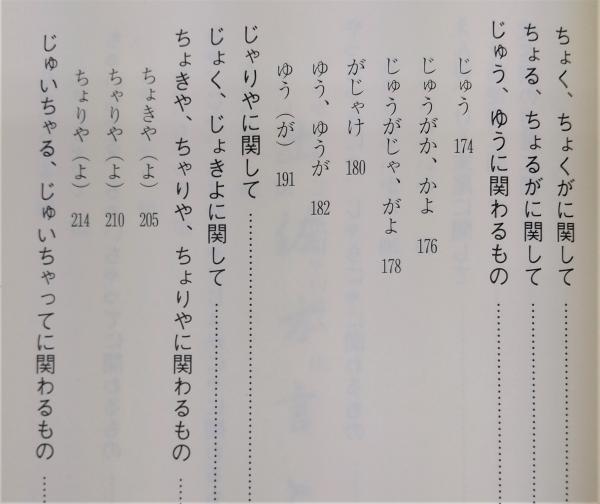 ちょく、ちょくがに関して……………………
ちょる、ちょるがに関して……………………
じゅう、ゆうに関わるもの……………………
じゅう 174
じゅうがか、かよ 176
じゅうがじゃ、がよ 178
がじゃけ 180
ゆう、ゆうが 182
ゆう（が） 191
じゃりやに関して……………………
じょく、じょきよに関して……………………
ちょきや、ちゃりや、ちょりやに関わるもの……
ちょきや（よ） 205
ちゃりや（よ） 210
ちょりや（よ） 214
じゅいちゃる、じゅいちゃってに関わるもの……